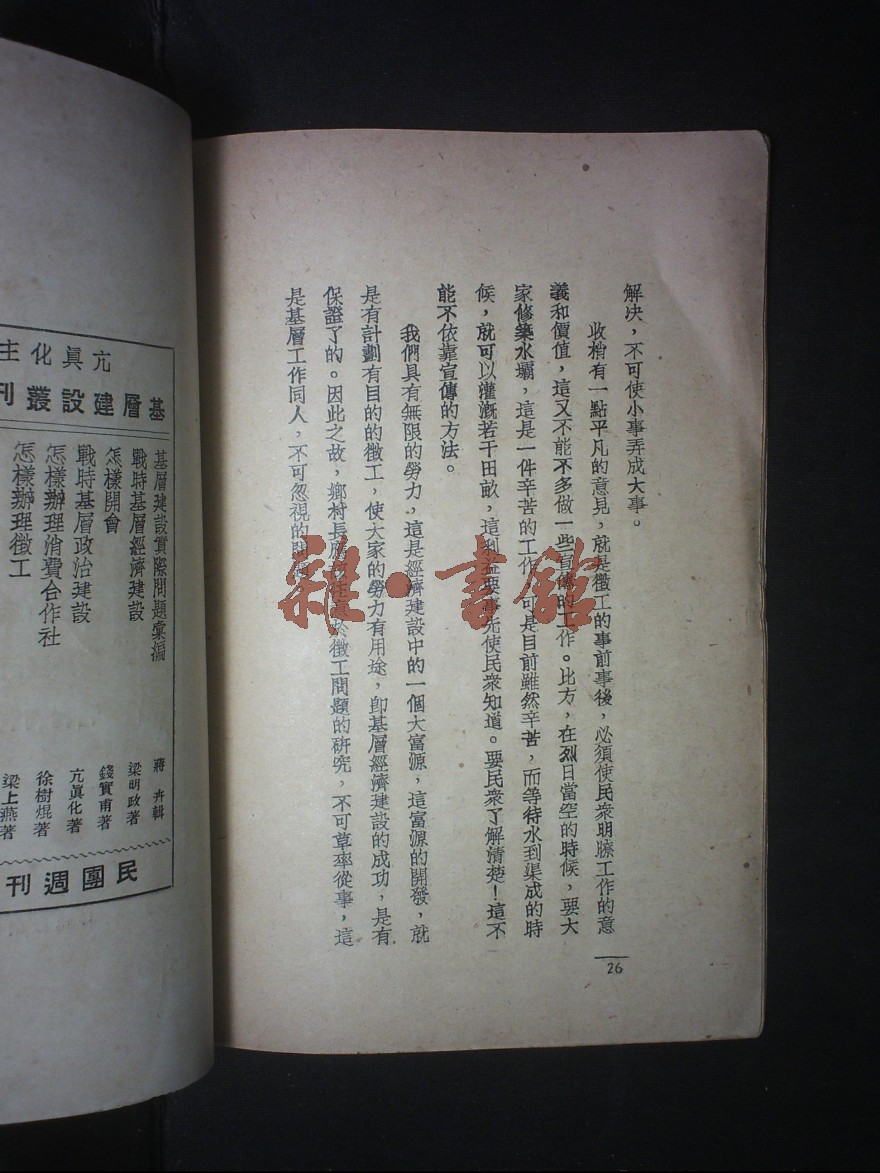 解决，不可使小事弄成大事。
收梢有一點平凡的意見，就是徵工的事前事後，必須使民衆明瞭工作的意
義和價值，這又不能不多做一些宣傳的工作。比方，在烈日當空的時候，要大
家修築水壩，這是一件辛苦的工作，可是目前雖然辛苦，而等待水到渠成的時
候，就可以灌漑若干田畝，這利益要事先使民衆知道。要民衆了解清楚！這不
能不依靠宣傳的方法。
我們具有無限的勞力，這是經濟建設中的一個大富源，這富源的開發，就
是有計劃有目的的徵工，使大家的勞力有用途，卽基層經濟建設的成功，是有
保證了的。因此之故，鄉村長應該注意於徵工問題的研究，不可草率從事，這
是基層工作同人，不可忽視的
26
雜·書館
亢眞化主
基層建設叢刊
基層建設實際問題彙編 蔣卉輯
戰時基層經濟建設 梁明政著
怎樣開會 錢實甫著
戰時基層政治建設 亢眞化著
怎樣辦理消費合作社 徐樹焜著
怎樣辦理徵工 梁上燕著
民團週刊